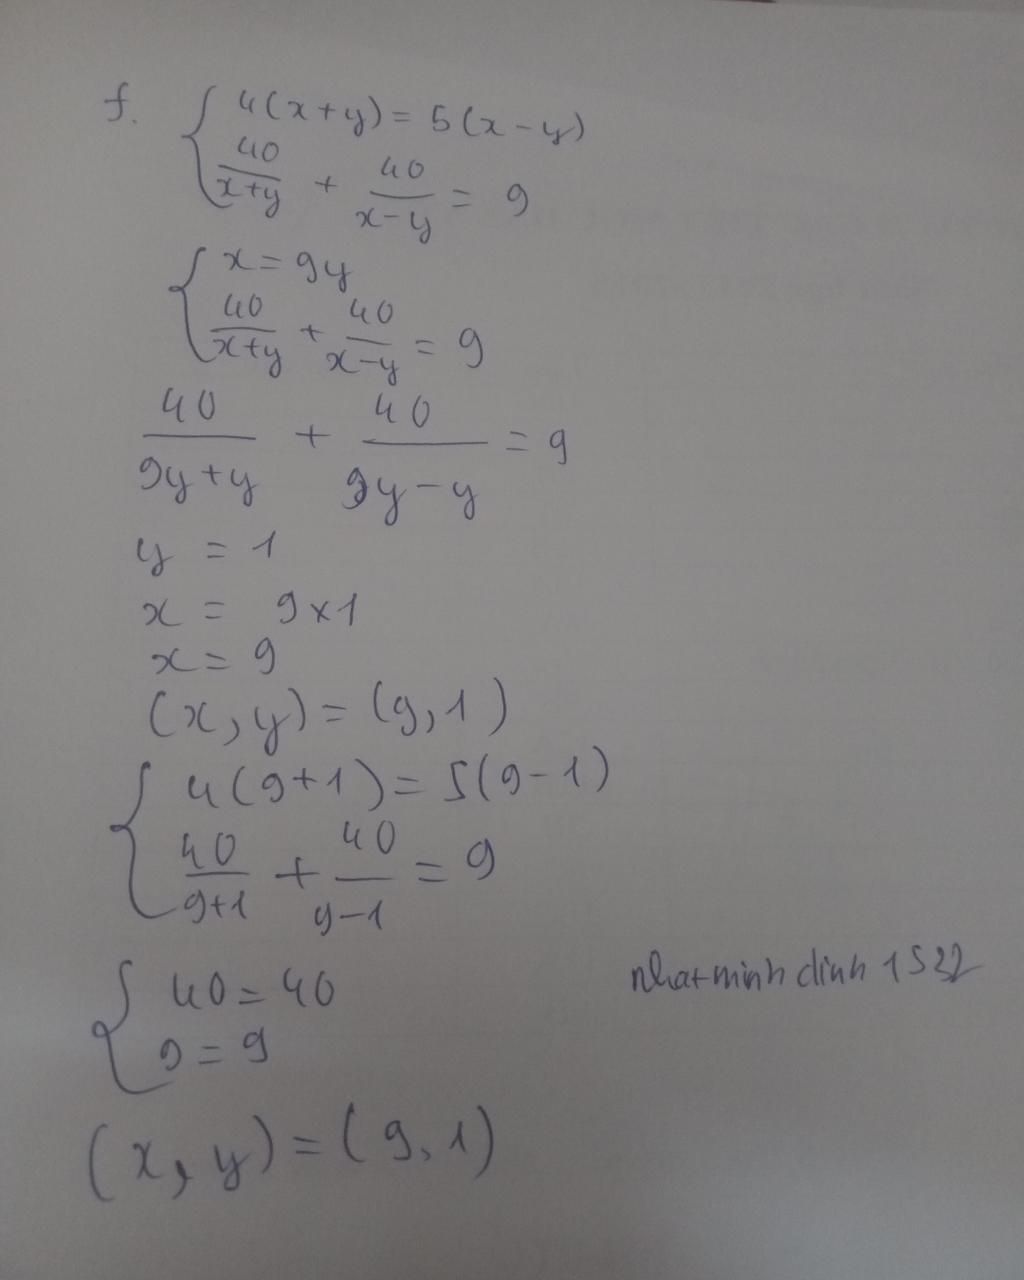 f. { 4(x+y) = 5(x-y)
40/(x+y) + 40/(x-y) = 9
{ x = 9y
40/(x+y) + 40/(x-y) = 9
40/(9y+y) + 40/(9y-y) = 9
y = 1
x = 9×1
x = 9
(x,y) = (9,1)
{ 4(9+1) = 5(9-1)
40/(9+1) + 40/(9-1) = 9
{ 40 = 40
9 = 9
nhatminh dinh 1522
(x,y) = (9,1)